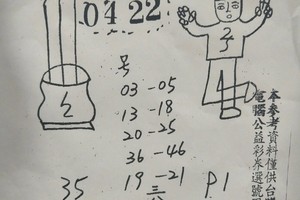 04 22
子
么
号
03-05
13-18
20-25
36-46
19-21
35
三
P1
本參考資料僅供台
電腦公益彩券選號